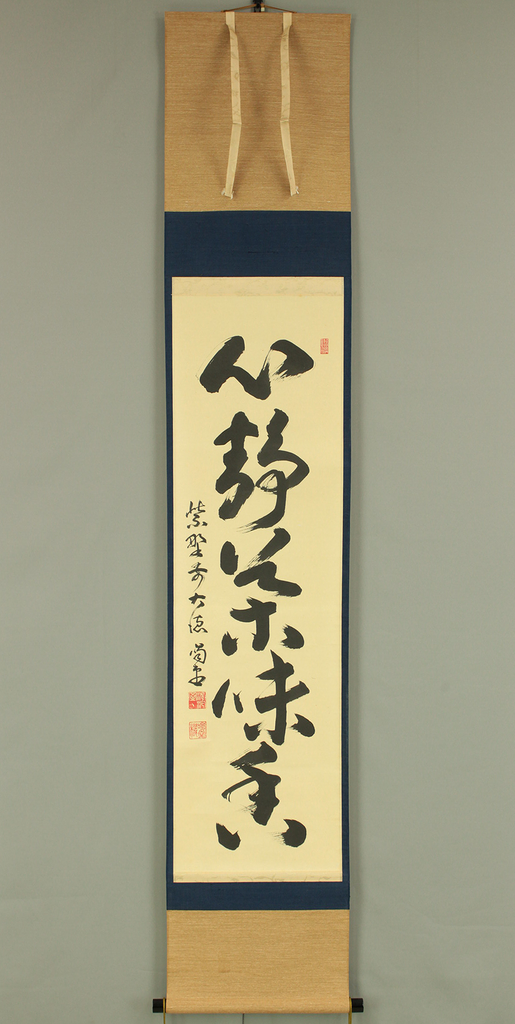 心静茶味香
紫野前大徳